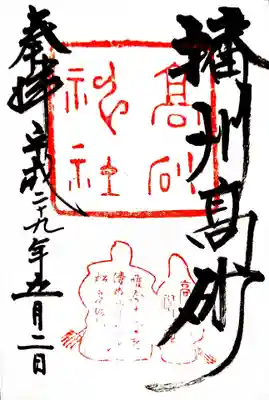 播州高砂
高砂
神社
奉拝 平成二十九年五月二日